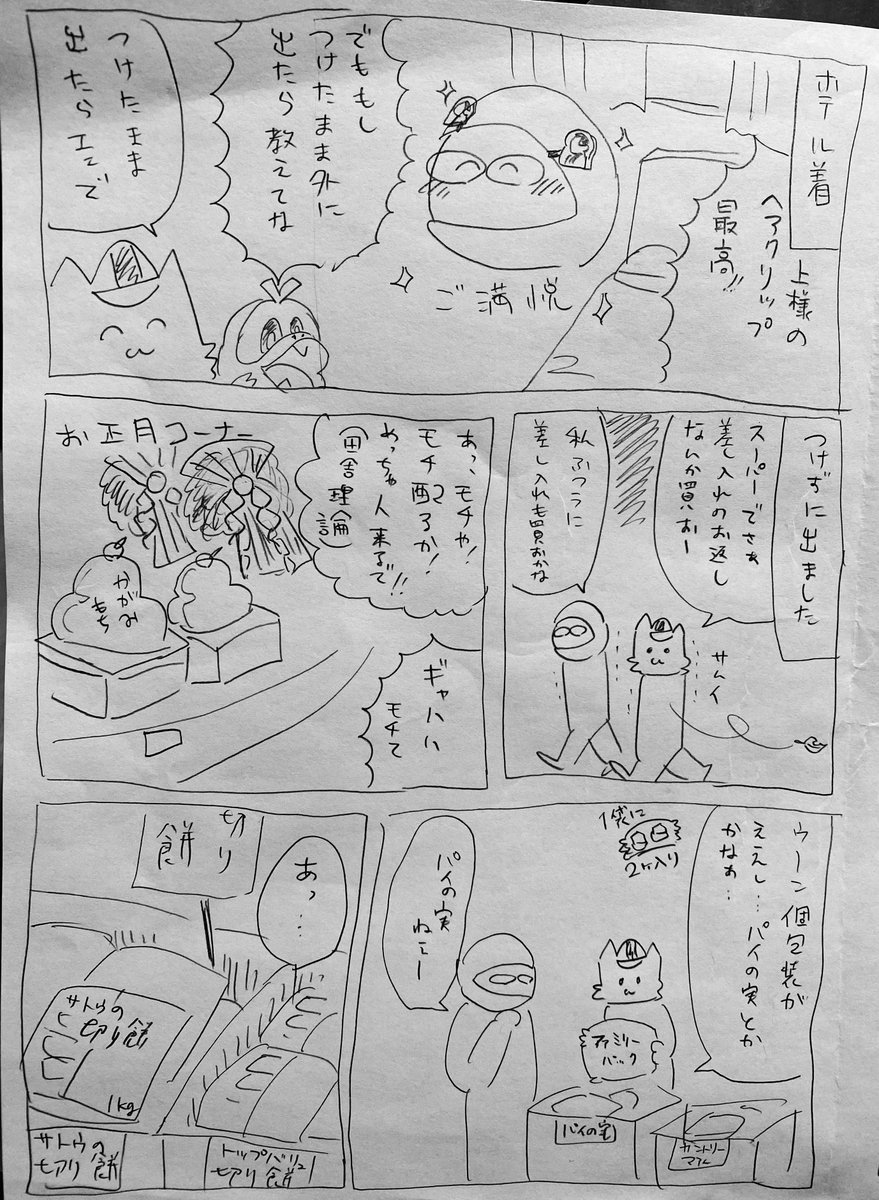 ホテル着
上様の
ヘアクリップ
最高!!
ご満悦
でももし
つけたまま外に
出たら教えてな
つけたまま
出たらエエで
つけずに出ました
スーパーでさぁ
差し入れのお返し
なんか買おー
私ふつうに
差し入れも買おかな
サムイ
あっ、モチや!
モチ配ろか!
めっちゃ人来るで!!
(田舎理論)
お正月コーナー
かがみ
もち
ギャハハ
モチて
ウーン個包装が
ええし…パイの実とか
かなぁ…
1袋に
2ヶ入り
パイの実
ねー
ファミリー
パック
パイの実
カントリー
マアム
あっ…
切り
餅
サトウの
切り餅
1kg
サトウの
切り餅
トップバリュ
切り餅